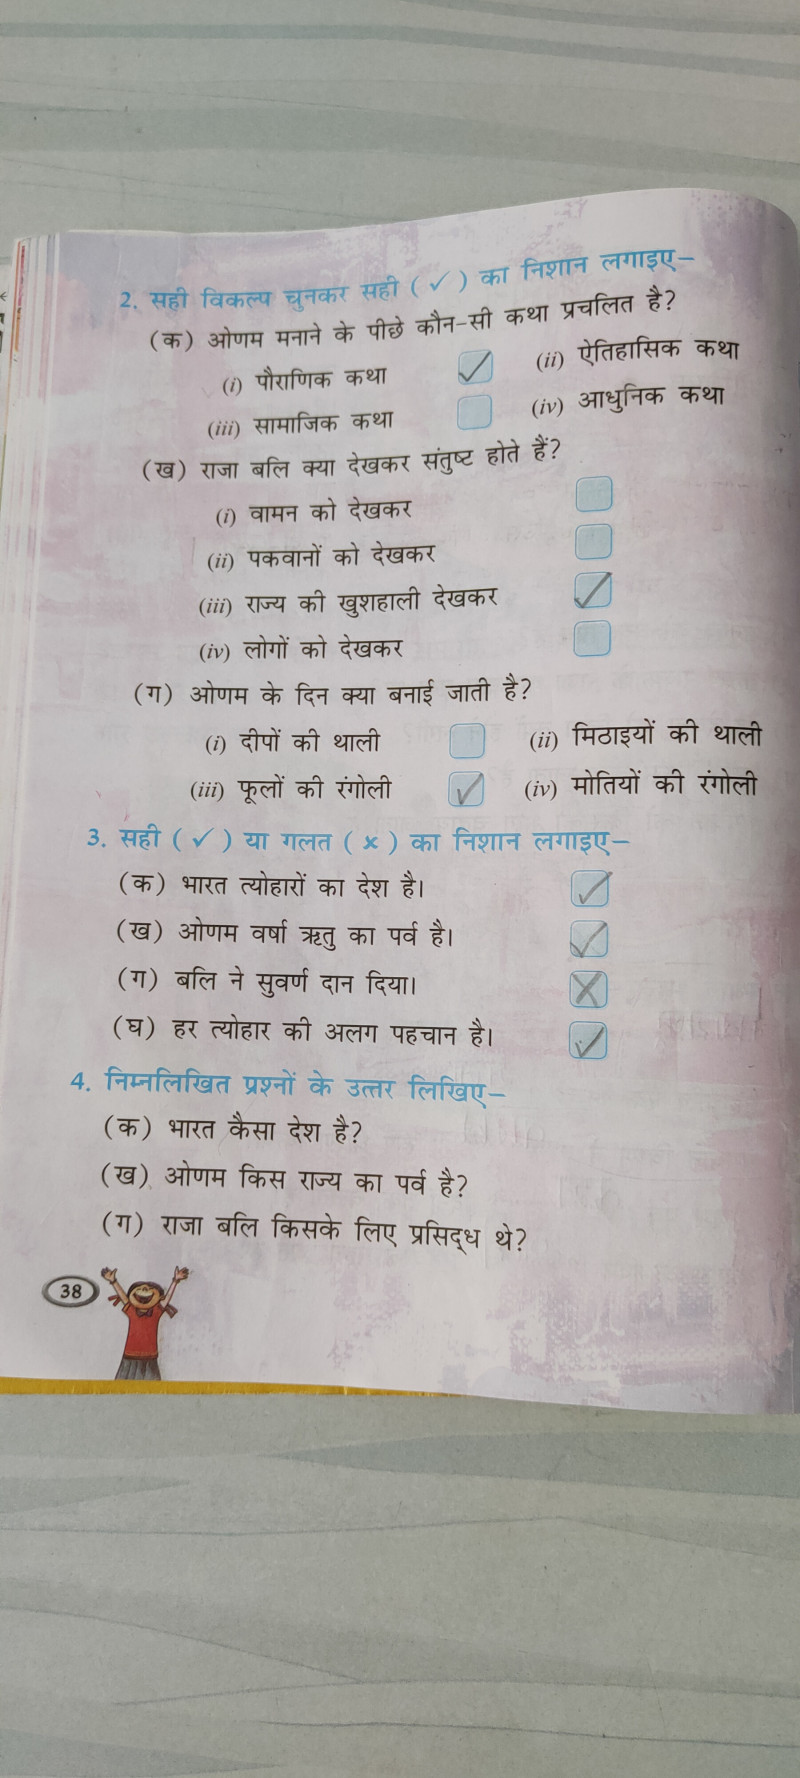 2. सही विकल्प चुनकर सही ( ✓ ) का निशान लगाइए–
(क) ओणम मनाने के पीछे कौन-सी कथा प्रचलित है?
(i) पौराणिक कथा ✓ (ii) ऐतिहासिक कथा
(iii) सामाजिक कथा (iv) आधुनिक कथा
(ख) राजा बलि क्या देखकर संतुष्ट होते हैं?
(i) वामन को देखकर
(ii) पकवानों को देखकर
(iii) राज्य की खुशहाली देखकर ✓
(iv) लोगों को देखकर
(ग) ओणम के दिन क्या बनाई जाती है?
(i) दीपों की थाली (ii) मिठाइयों की थाली
(iii) फूलों की रंगोली ✓ (iv) मोतियों की रंगोली
3. सही ( ✓ ) या गलत ( × ) का निशान लगाइए–
(क) भारत त्योहारों का देश है। ✓
(ख) ओणम वर्षा ऋतु का पर्व है। ✓
(ग) बलि ने सुवर्ण दान दिया। ×
(घ) हर त्योहार की अलग पहचान है। ✓
4. निम्नलिखित प्रश्नों के उत्तर लिखिए–
(क) भारत कैसा देश है?
(ख) ओणम किस राज्य का पर्व है?
(ग) राजा बलि किसके लिए प्रसिद्ध थे?
38